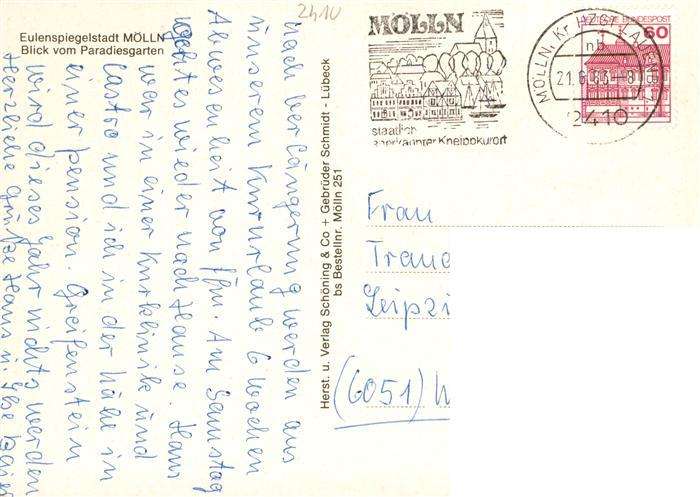 2410
Eulenspiegelstadt MÖLLN
Blick vom Paradiesgarten
nach Verlängerung werden aus
unserem Kururlaub 6 Wochen
Abwesenheit von Ffm. Am Samstag
geht es wieder nach Hause. Hans
war in einer Kurklinik und
Castro und ich in der Nähe in
einer Pension. Greifenstein
wird dieses Jahr nichts werden
Herzliche Grüße Hans u.
Herst. u. Verlag Schöning & Co + Gebrüder Schmidt - Lübeck
bs Bestellnr. Mölln 251
MÖLLN
staatlich
anerkannter Kneippkurort
MÖLLN, Kr HZGT LAUEN
nb
21.6.83.-8
2410
DEUTSCHE BUNDESPOST
60
Frau
Leipzi
(6051)